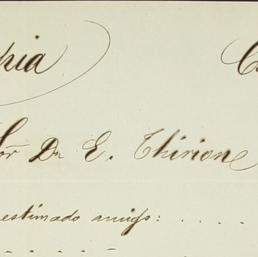 pia C
or Dn E. Thirion
estimado amigo: . . . .
. . . . . . . .